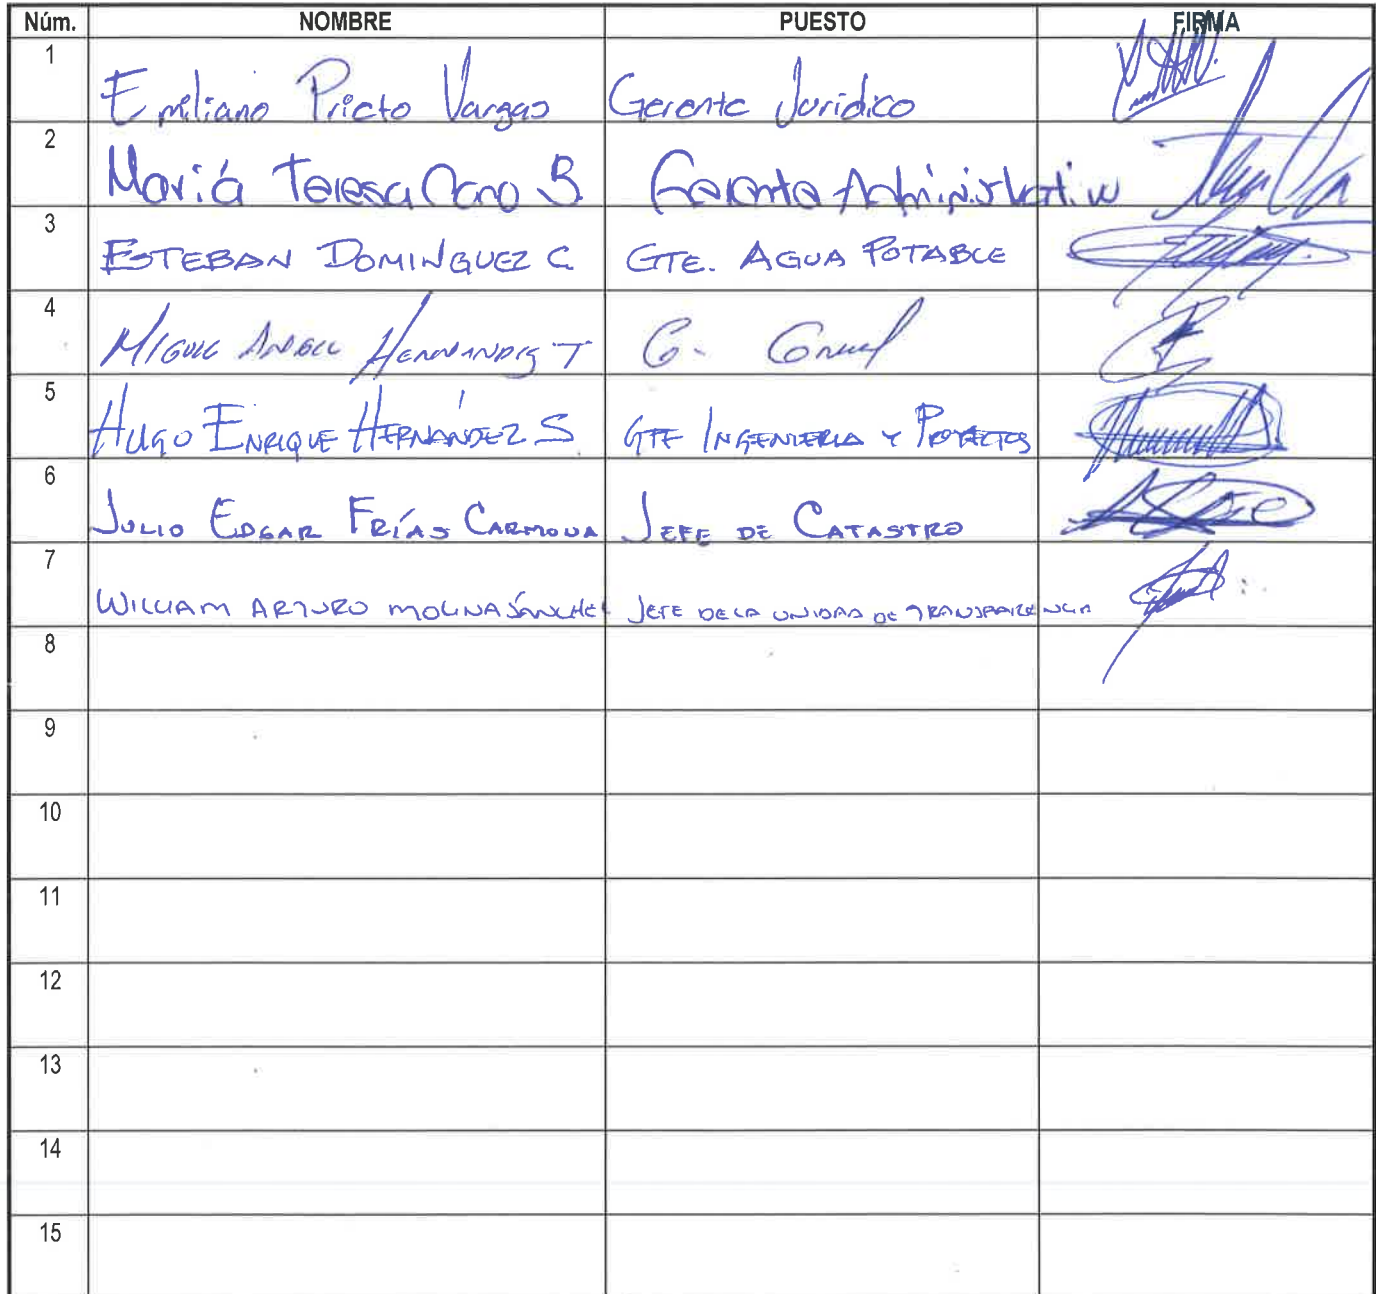 Núm. NOMBRE PUESTO FIRMA
1 Emiliano Prieto Vargas Gerente Juridico
2 Mariá Teresa Cano S. Gerente Administrativo
3 ESTEBAN DOMINGUEZ C. GTE. AGUA POTABLE
4 MIGUEL ANGEL HERNANDEZ T G. Gral
5 HUGO ENRIQUE HERNÁNDEZ S GTE INGENIERIA Y PROYECTOS
6 JULIO EDGAR FRÍAS CARMONA JEFE DE CATASTRO
7 WILLIAM ARTURO MOLINA SÁNCHEZ JEFE DE LA UNIDAD DE TRANSPARENCIA
8
9
10
11
12
13
14
15